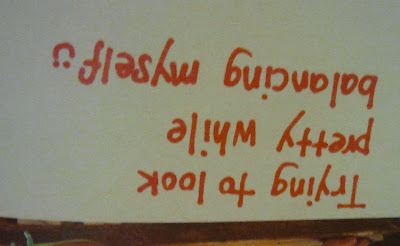 Trying to look
pretty while
balancing myself :)